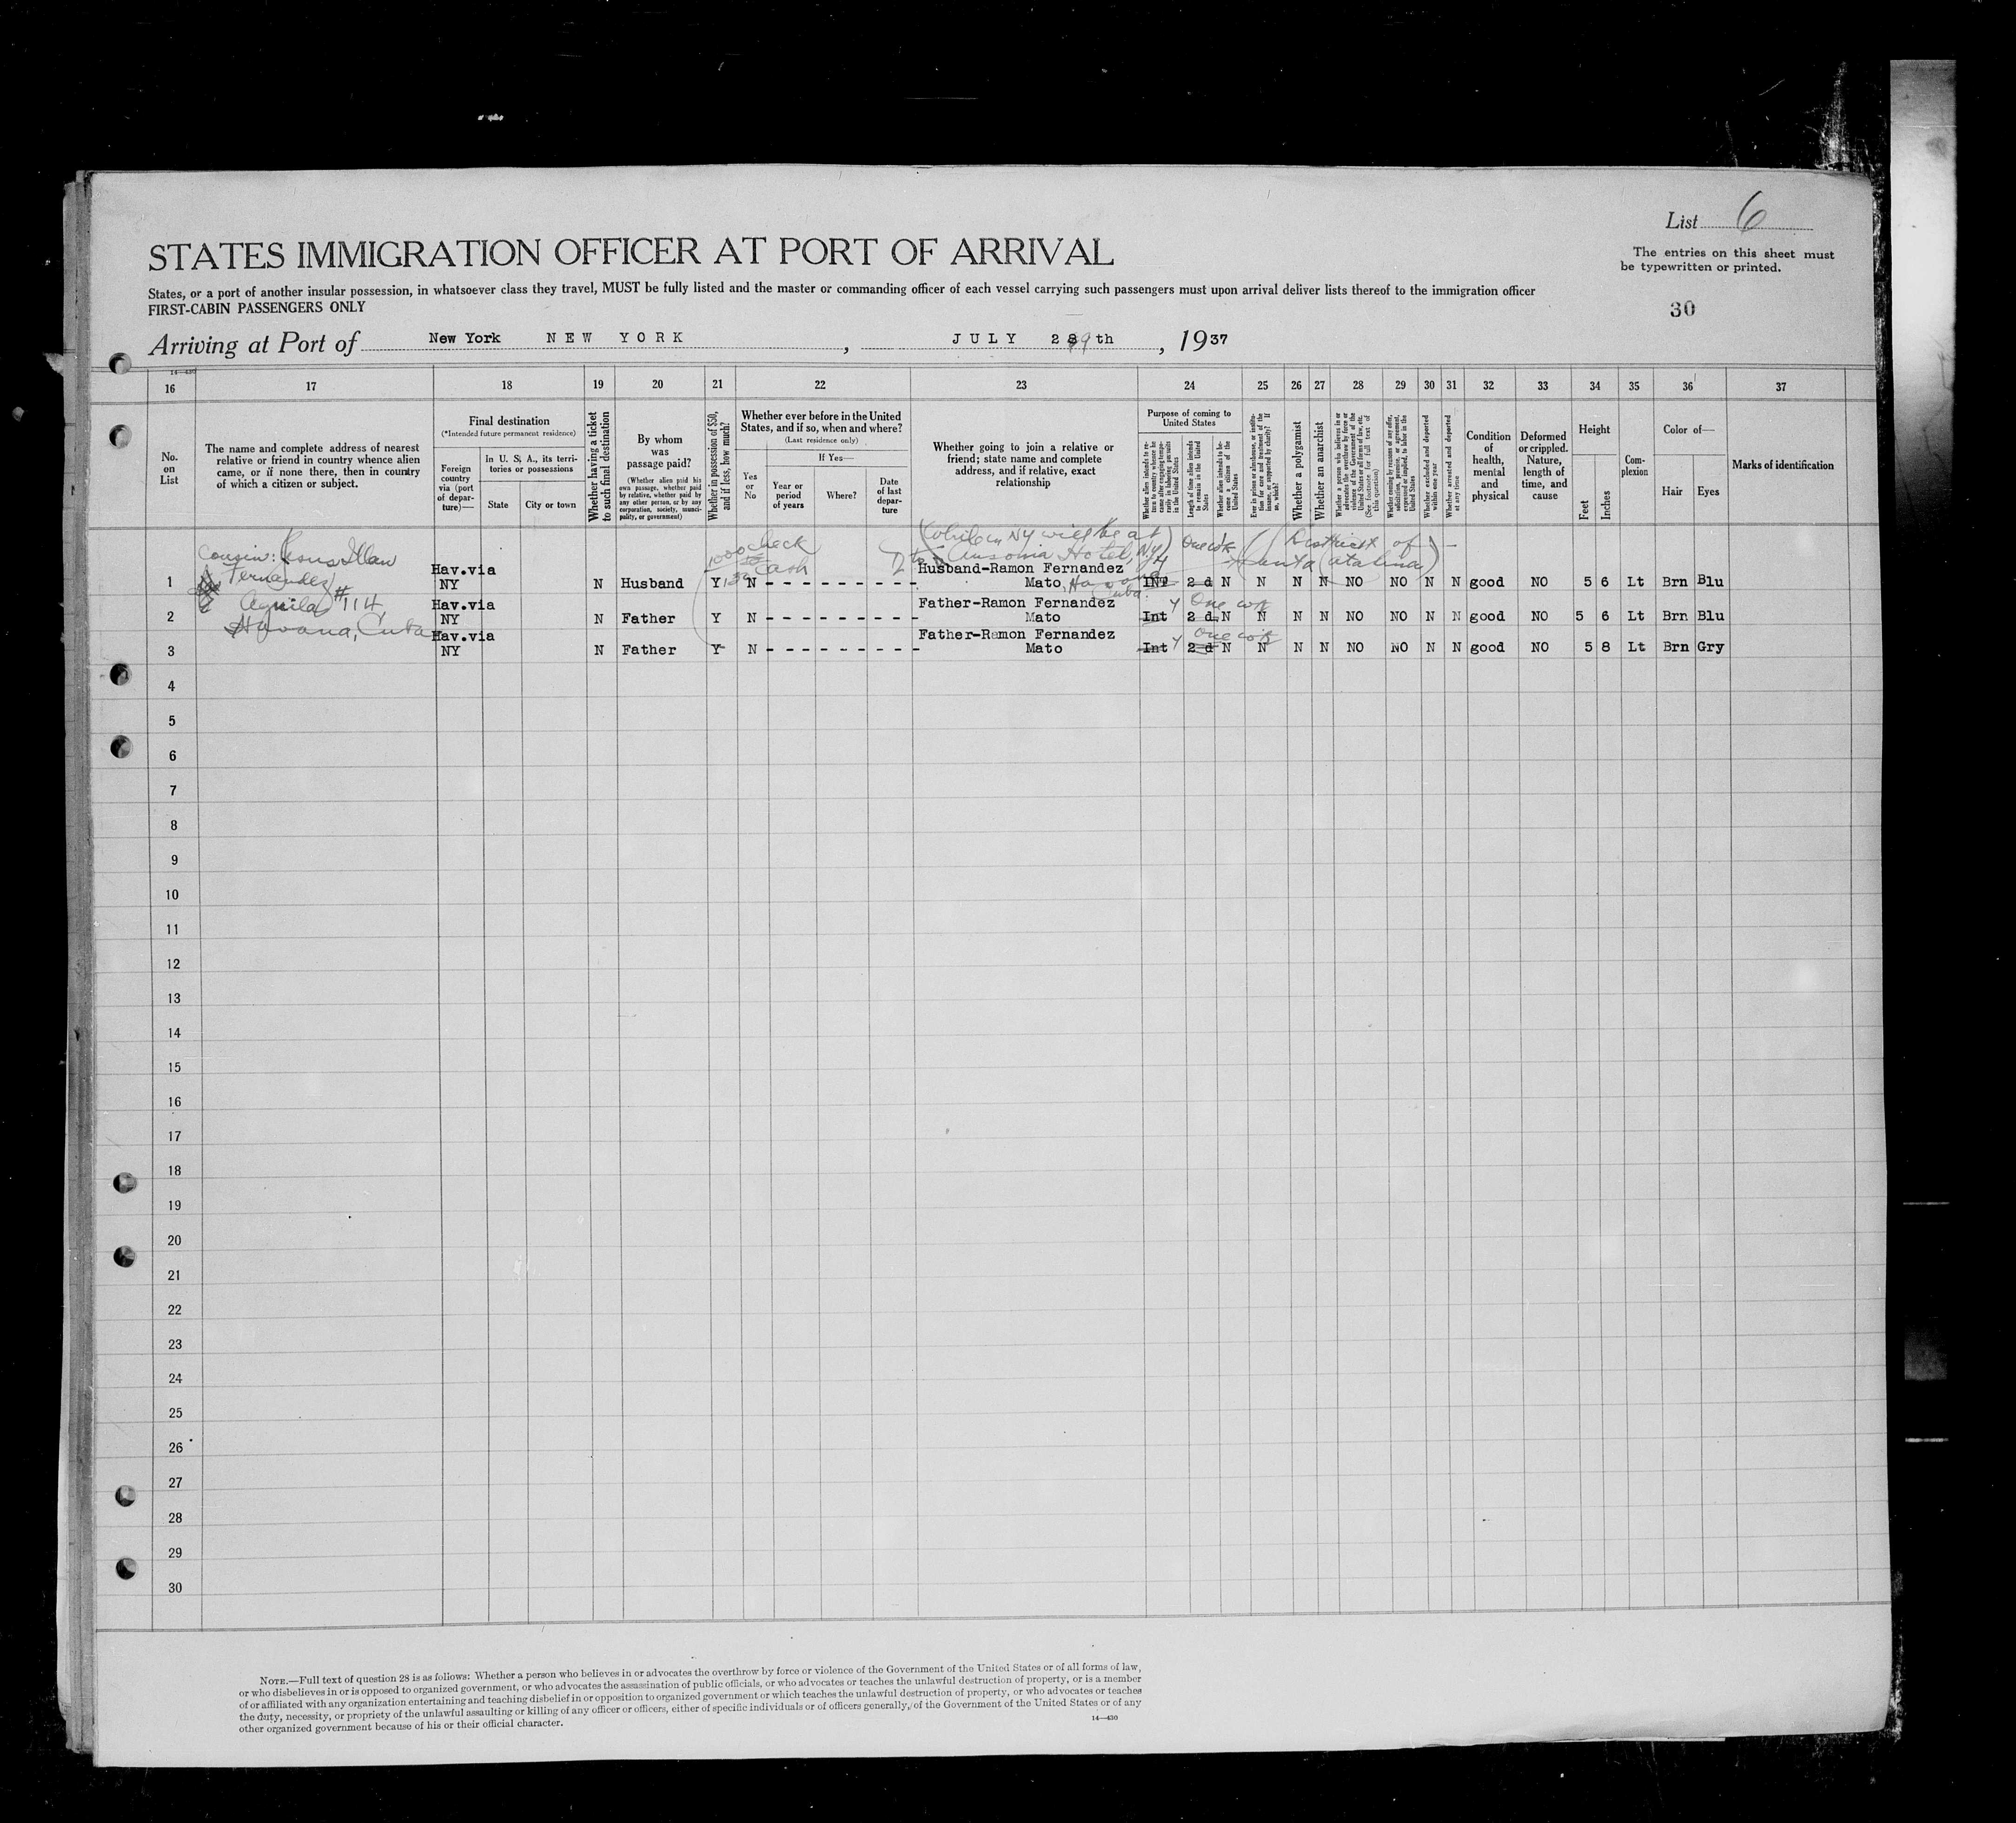 List 6
The entries on this sheet must
be typewritten or printed.
STATES IMMIGRATION OFFICER AT PORT OF ARRIVAL
States, or a port of another insular possession, in whatsoever class they travel, MUST be fully listed and the master or commanding officer of each vessel carrying such passengers must upon arrival deliver lists thereof to the immigration officer
FIRST-CABIN PASSENGERS ONLY
30
Arriving at Port of New York NEW YORK, JULY 29th, 1937
14—430
16 17 18 19 20 21 22 23 24 25 26 27 28 29 30 31 32 33 34 35 36 37
No. on List
The name and complete address of nearest
relative or friend in country whence alien
came, or if none there, then in country
of which a citizen or subject.
Final destination
(*Intended future permanent residence)
Foreign country via (port of departure)—
In U. S. A., its territories or possessions
State
City or town
Whether having a ticket to such final destination
By whom was passage paid?
(Whether alien paid his own passage, whether paid by relative, whether paid by any other person, or by any corporation, society, municipality, or government)
Whether in possession of $50, and if less, how much?
Whether ever before in the United
States, and if so, when and where?
(Last residence only)
Yes or No
If Yes—
Year or period of years
Where?
Date of last departure
Whether going to join a relative or
friend; state name and complete
address, and if relative, exact
relationship
Purpose of coming to
United States
Whether alien intends to return to country whence he came after engaging temporarily in laboring pursuits in the United States
Length of time alien intends to remain in the United States
Whether alien intends to become a citizen of the United States
Ever in prison or almshouse, or institution for care and treatment of the insane, or supported by charity? If so, which?
Whether a polygamist
Whether an anarchist
Whether a person who believes in or advocates the overthrow by force or violence of the Government of the United States or all forms of law, etc. (See footnote for full text of this question)
Whether coming by reason of any offer, solicitation, promise, or agreement, expressed or implied, to labor in the United States
Whether excluded and deported within one year
Whether arrested and deported at any time
Condition of health, mental and physical
Deformed or crippled. Nature, length of time, and cause
Height
Feet
Inches
Complexion
Color of—
Hair
Eyes
Marks of identification
Cousin: Jesus Illan
Fernandez
Aguila #114,
Havana, Cuba
1000 check
Cash
(While in NY will be at
Ansonia Hotel, NY)
One wk
(District of
Santa Catalina)
1 Hav.via NY N Husband Y N - - - - - - - - - Husband-Ramon Fernandez Mato, Havana Cuba. Int 2 d N N N N NO NO N N good NO 5 6 Lt Brn Blu
2 Hav.via NY N Father Y N - - - - - - - - - Father-Ramon Fernandez Mato Int y 2 d One wk N N N N NO NO N N good NO 5 6 Lt Brn Blu
3 Hav.via NY N Father Y N - - - - - - - - - Father-Ramon Fernandez Mato Int y 2 d One wk N N N N NO NO N N good NO 5 8 Lt Brn Gry
4
5
6
7
8
9
10
11
12
13
14
15
16
17
18
19
20
21
22
23
24
25
26
27
28
29
30
NOTE.—Full text of question 28 is as follows: Whether a person who believes in or advocates the overthrow by force or violence of the Government of the United States or of all forms of law,
or who disbelieves in or is opposed to organized government, or who advocates the assassination of public officials, or who advocates or teaches the unlawful destruction of property, or is a member
of or affiliated with any organization entertaining and teaching disbelief in or opposition to organized government or which teaches the unlawful destruction of property, or who advocates or teaches
the duty, necessity, or propriety of the unlawful assaulting or killing of any officer or officers, either of specific individuals or of officers generally, of the Government of the United States or of any
other organized government because of his or their official character.
14—430